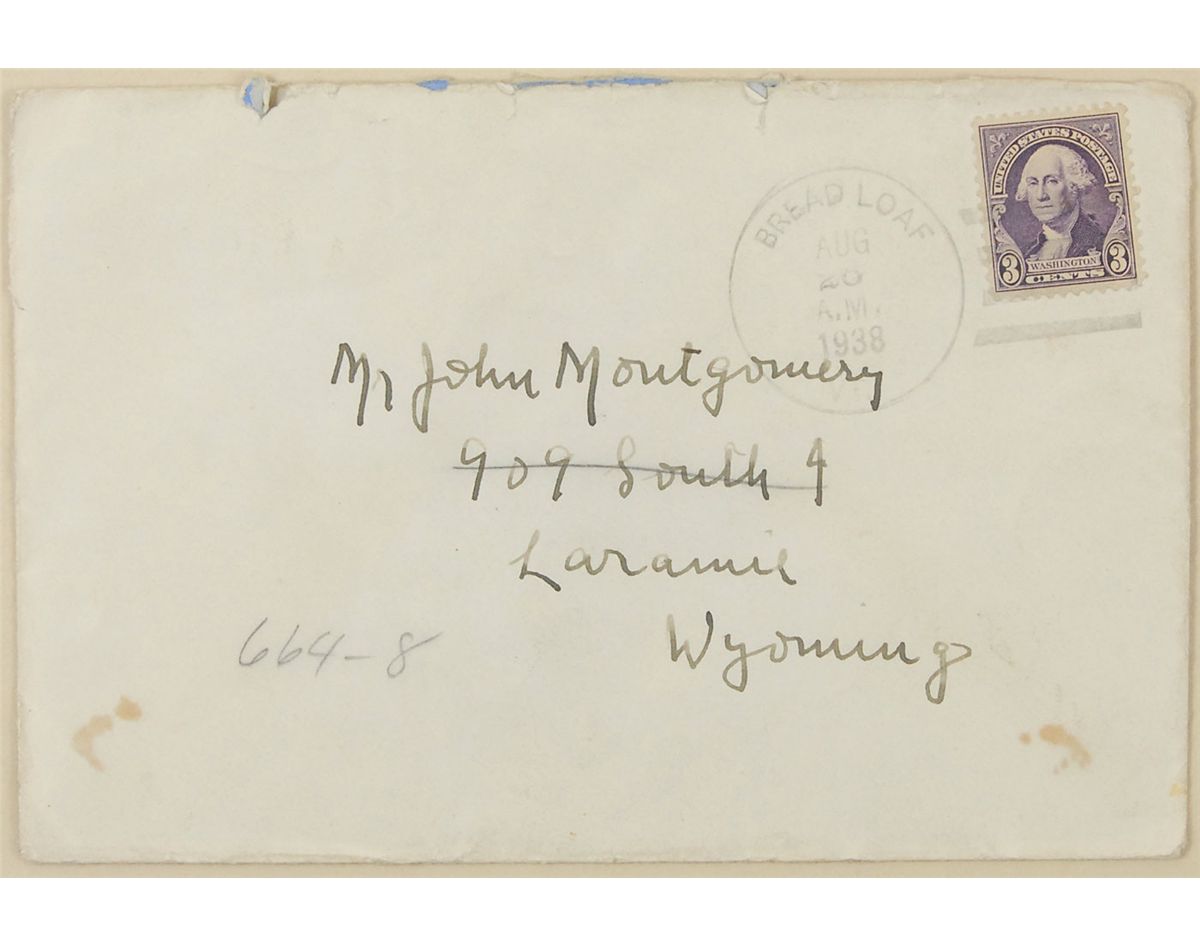 UNITED STATES POSTAGE
3 WASHINGTON 3
CENTS
BREAD LOAF
AUG
A.M.
1938
Mr John Montgomery
909 South 9
Laramie
Wyoming
664-8